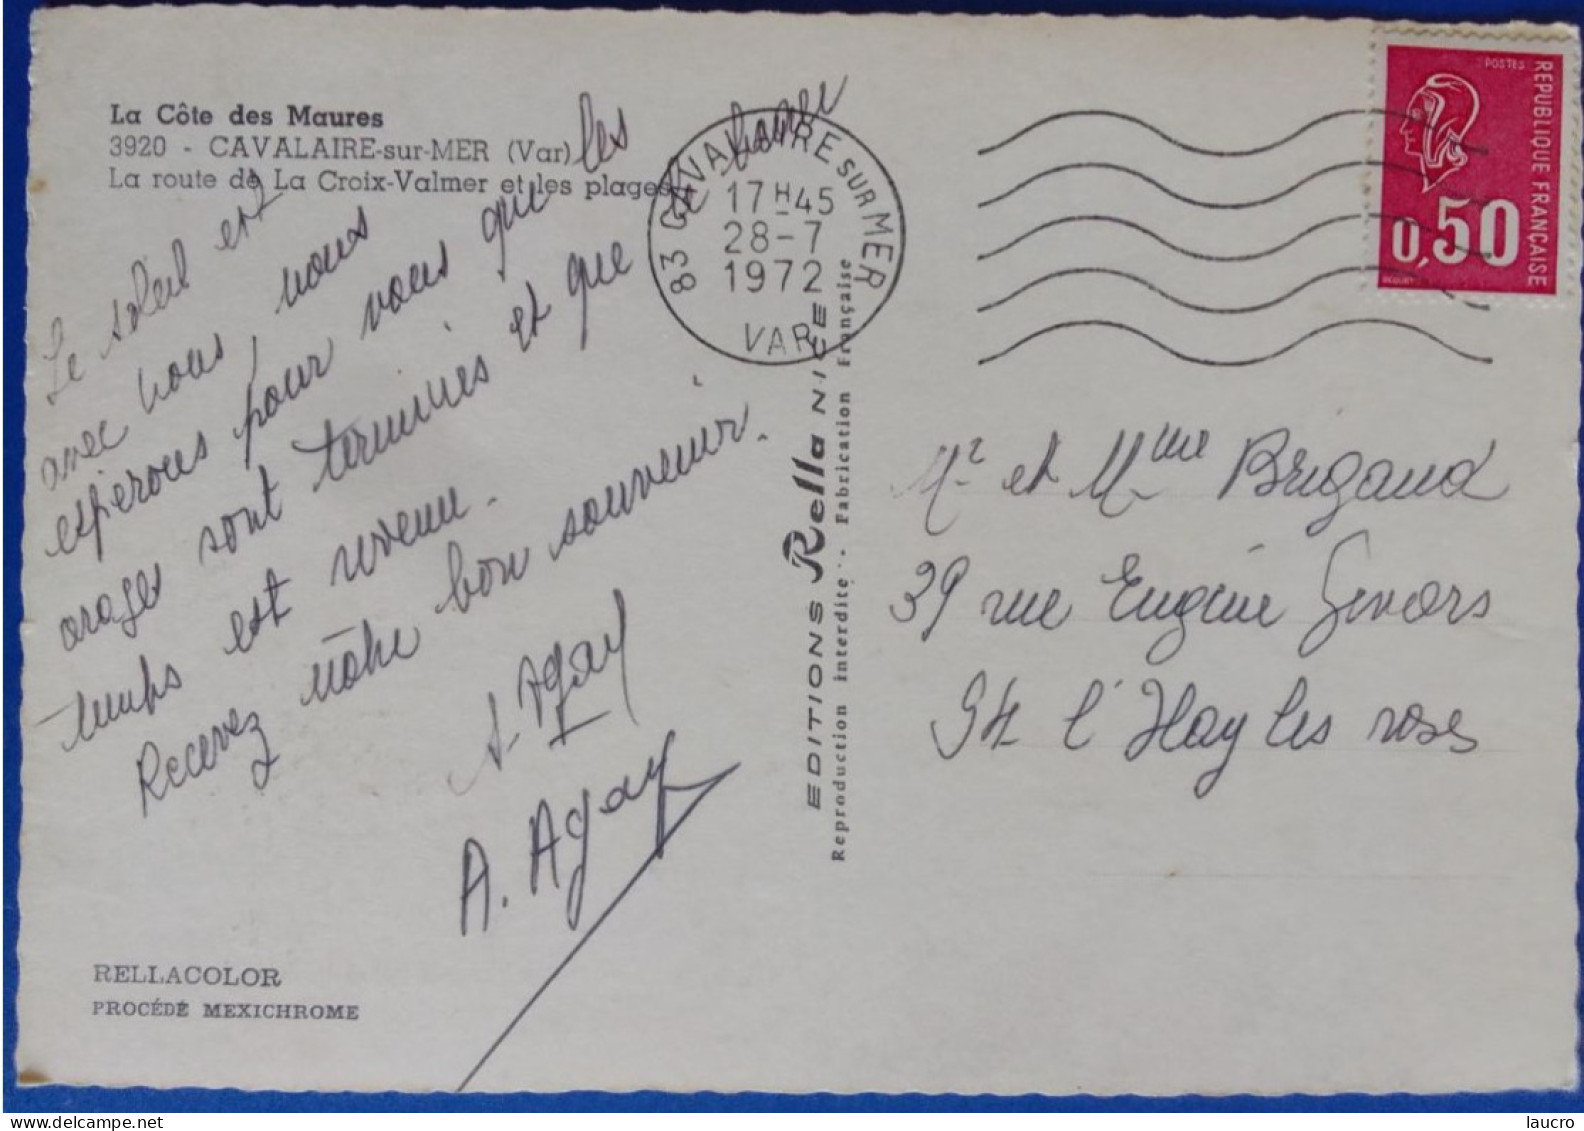 La Côte des Maures
3920 - CAVALAIRE-sur-MER (Var)
La route de La Croix-Valmer et les plages
Le soleil est
avec nous, nous
espérons pour vous que les
orages sont terminés et que le beau
temps est revenu.
Recevez nôtre bon souvenir.
A. Agay
A. Agay
RELLACOLOR
PROCÉDÉ MEXICHROME
83 CAVALAIRE SUR MER
17H45
28-7
1972
VAR
EDITIONS Rella NICE
Reproduction Interdite · Fabrication Française
POSTES
REPUBLIQUE FRANÇAISE
0,50
Mr et Mme Brigaud
39 rue Eugène
94 l'Hay les roses
delcampe.net
laucro